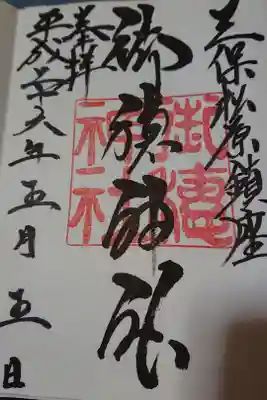 三保松原鎮座
御穂神社
奉拝
平成二十六年五月五日
御穂神社